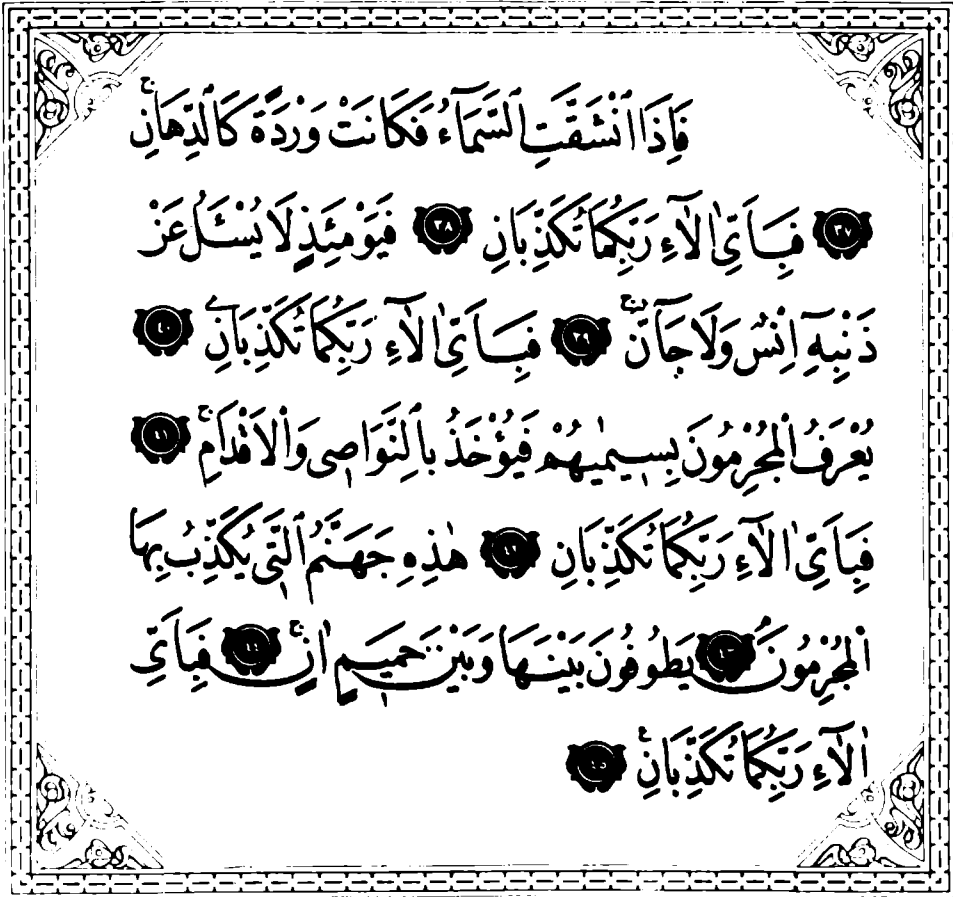 فَاِذَا انْشَقَّتِ السَّمَٓاءُ فَكَانَتْ وَرْدَةً كَالدِّهَانِۚ
﴿٣٧﴾ فَبِاَيِّ اٰلَٓاءِ رَبِّكُمَا تُكَذِّبَانِ ﴿٣٨﴾ فَيَوْمَئِذٍ لَا يُسْـَٔلُ عَنْ
ذَنْبِه۪ٓ اِنْسٌ وَلَا جَٓانٌّۚ ﴿٣٩﴾ فَبِاَيِّ اٰلَٓاءِ رَبِّكُمَا تُكَذِّبَانِ ﴿٤٠﴾
يُعْرَفُ الْمُجْرِمُونَ بِس۪يمٰيهُمْ فَيُؤْخَذُ بِالنَّوَاص۪ي وَالْاَقْدَامِۚ ﴿٤١﴾
فَبِاَيِّ اٰلَٓاءِ رَبِّكُمَا تُكَذِّبَانِ ﴿٤٢﴾ هٰذِه۪ جَهَنَّمُ الَّت۪ي يُكَذِّبُ بِهَا
الْمُجْرِمُونَۢ ﴿٤٣﴾ يَطُوفُونَ بَيْنَهَا وَبَيْنَ حَم۪يمٍ اٰنٍۚ ﴿٤٤﴾ فَبِاَيِّ
اٰلَٓاءِ رَبِّكُمَا تُكَذِّبَانِ۟ ﴿٤٥﴾